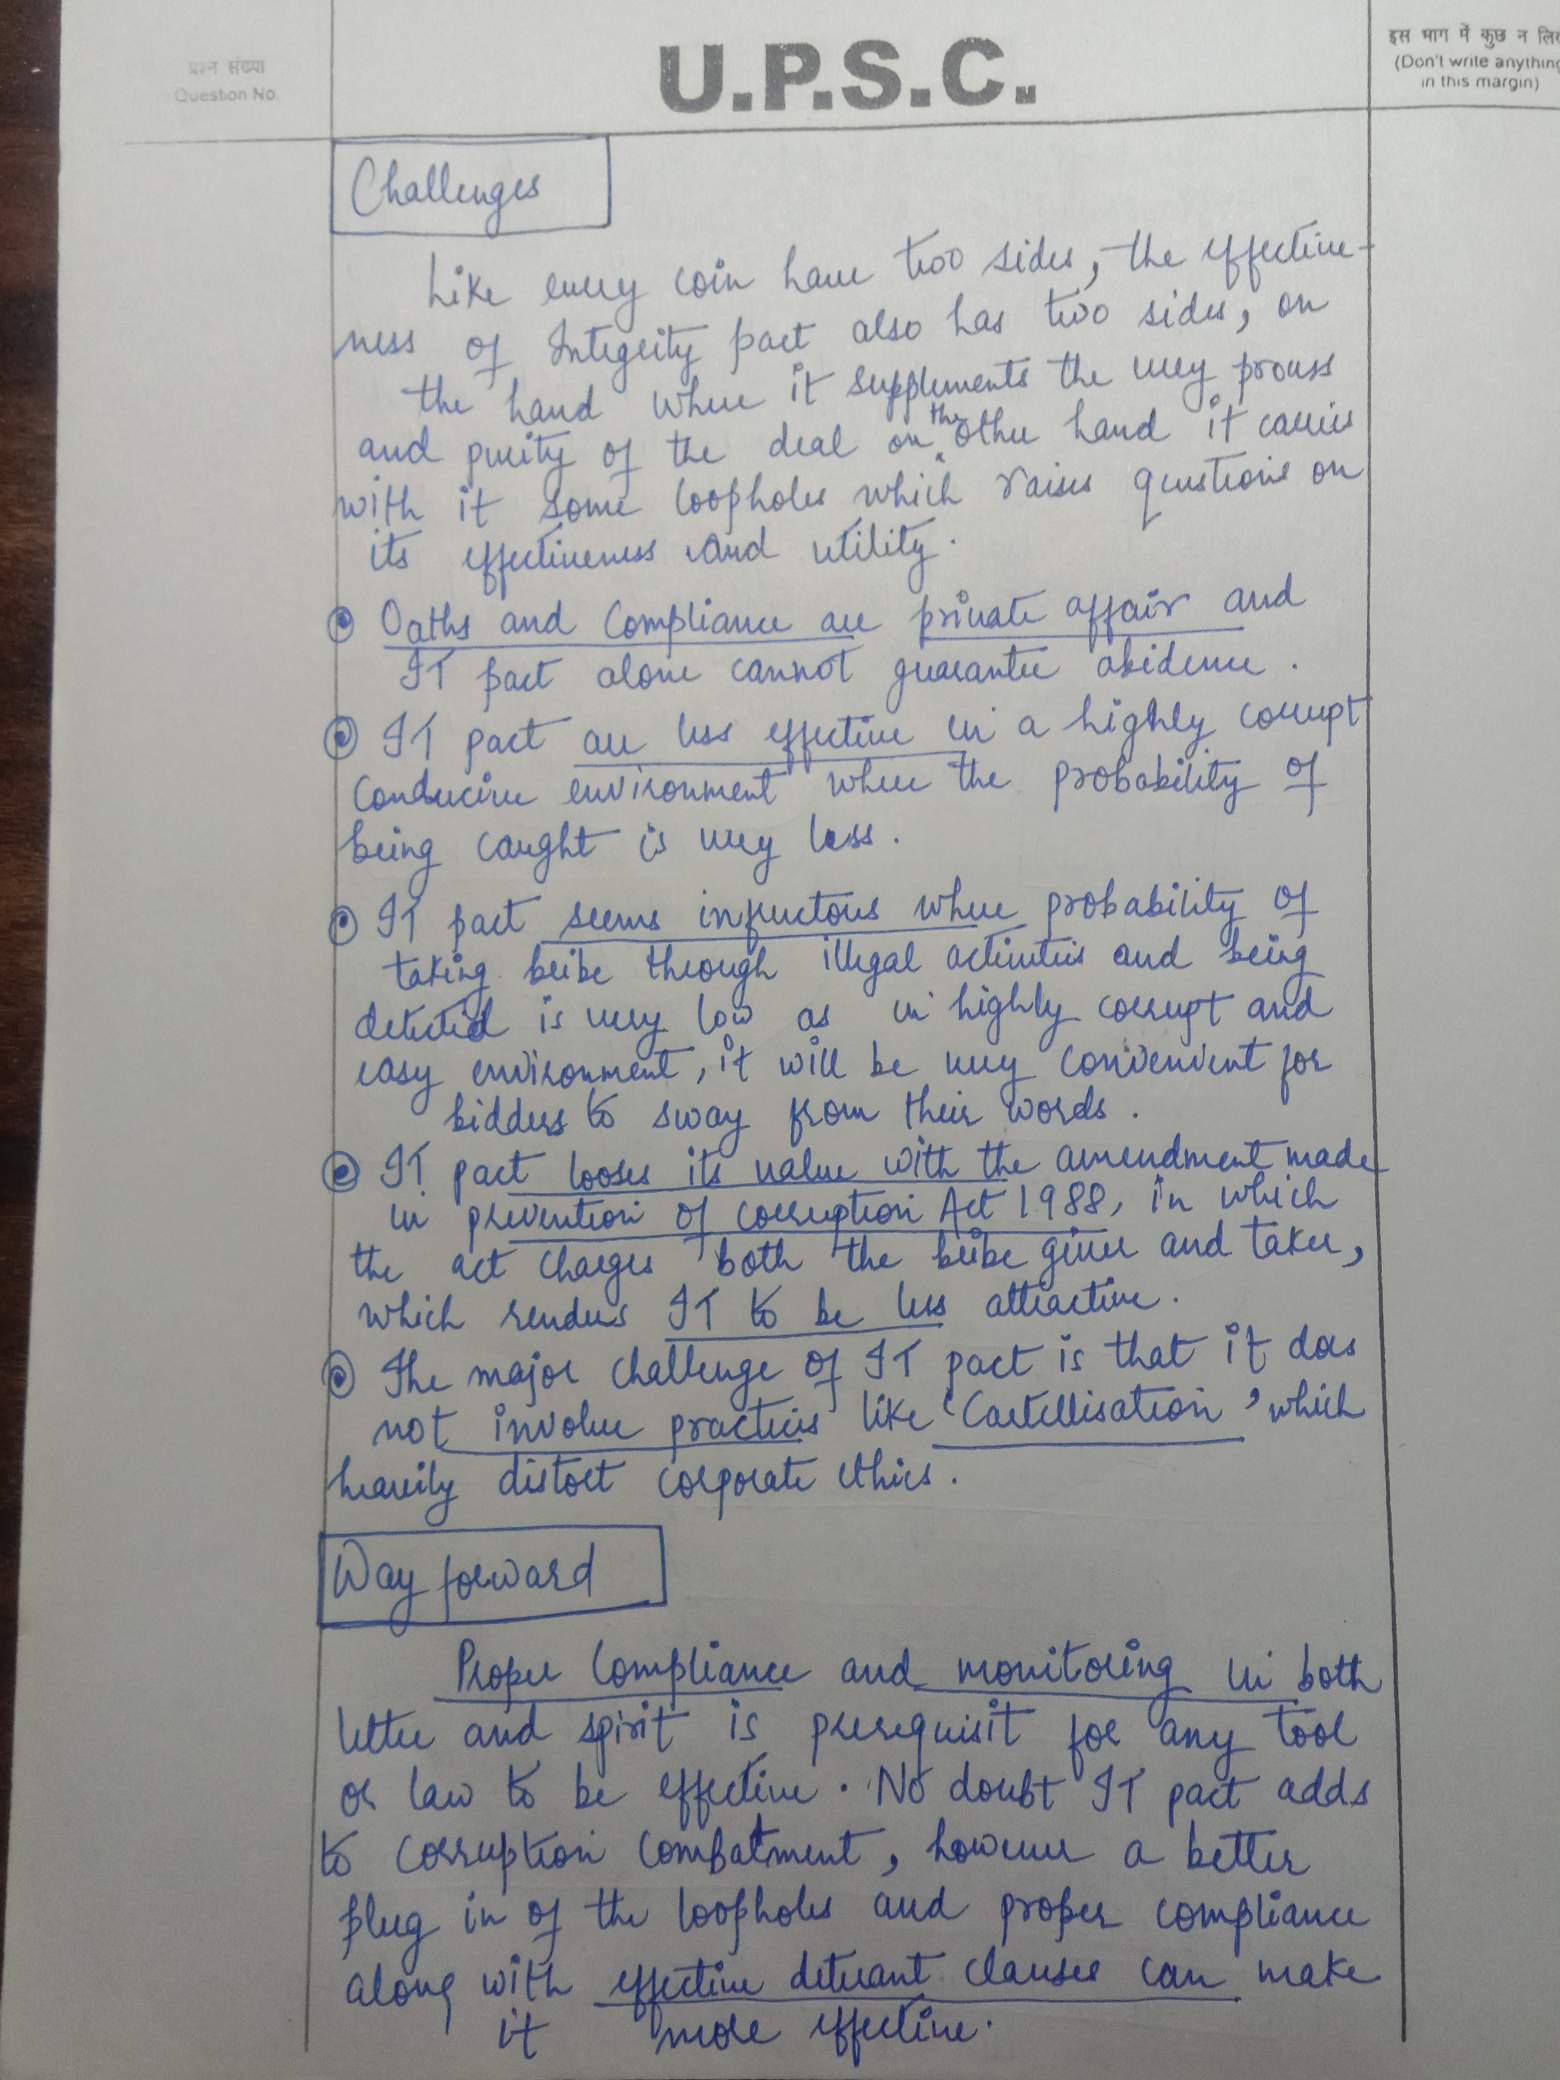 प्रश्न संख्या
Question No.
U.P.S.C.
इस भाग में कुछ न लि
(Don't write anything
in this margin)
Challenges
Like every coin have two sides, the effective-
ness of Integrity pact also has two sides, on
the hand where it supplements the very process
and purity of the deal on the other hand it carries
with it some loopholes which raises questions on
its effectiveness and utility.
Oaths and Compliance are private affair and
IT pact alone cannot guarantee abidence.
IT pact are less effective in a highly corrupt
conducive environment where the probability of
being caught is very less.
IT pact seems infructous where probability of
taking bribe through illegal activities and being
detected is very low as in highly corrupt and
easy environment, it will be very convenvent for
bidders to sway from their words.
IT pact looses its value with the amendment made
in prevention of corruption Act 1988, in which
the act charges both the bribe giver and taker,
which renders IT to be less attractive.
The major challenge of IT pact is that it does
not involve practices like 'Cartellisation' which
heavily distort corporate ethics.
Way forward
Proper Compliance and monitoring in both
letter and spirit is prerequisit for any tool
or law to be effective. No doubt IT pact adds
to corruption combatment, however a better
plug in of the loopholes and proper compliance
along with effective deterant clauses can make
it more effective.